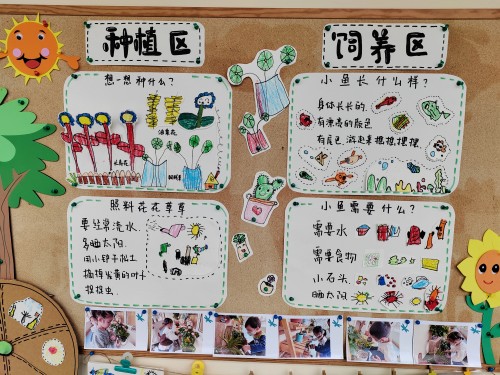 种植区
饲养区
想一想种什么？
油菜花
小鱼长什么样？
身体长长的，
有漂亮的颜色
有尾巴，游起来摆摆摆
照料花花草草
要经常浇水，
多晒太阳.
用小铲子松土
摘掉发黄的叶子
捉捉虫.
小鱼需要什么？
需要水
需要食物
小石头.
晒太阳.